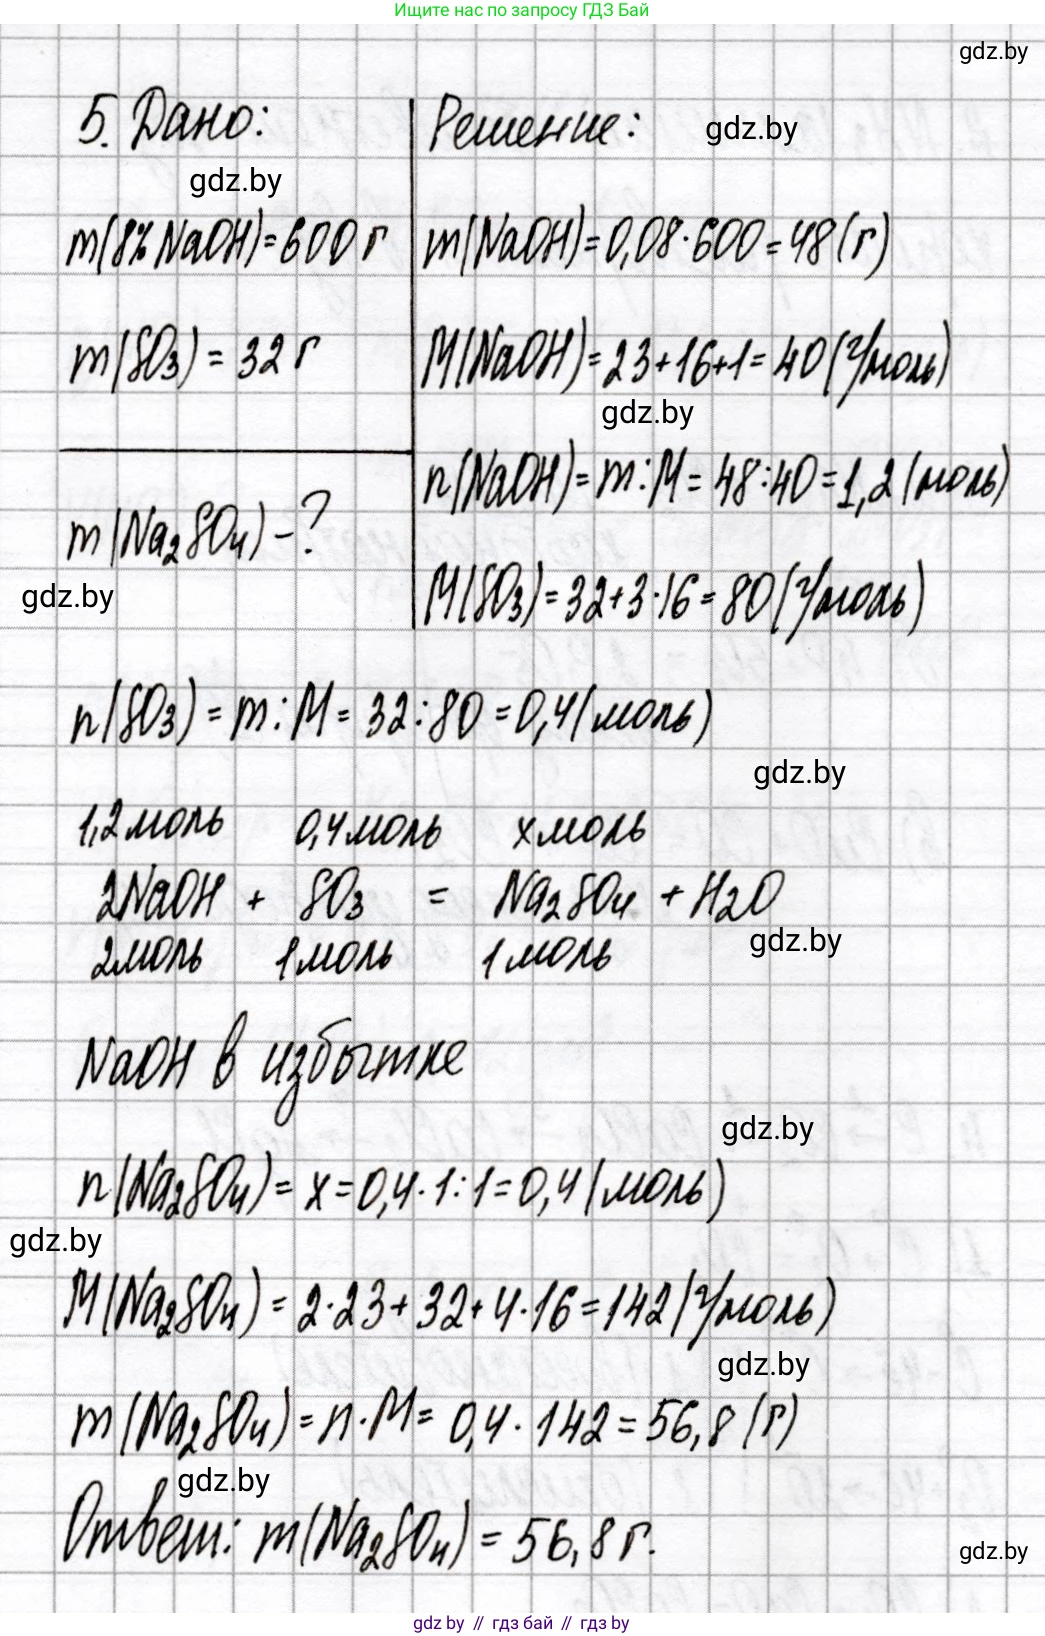 Ищите нас по запросу ГДЗ Бай
gdz.by
5. Дано:
Решение:
gdz.by
gdz.by
m(8% NaOH)=600 г
m(NaOH)=0,08·600=48(г)
m(SO₃)=32 г
M(NaOH)=23+16+1=40(г/моль)
gdz.by
n(NaOH)=m:M=48:40=1,2(моль)
m(Na₂SO₄)-?
gdz.by
M(SO₃)=32+3·16=80(г/моль)
n(SO₃)=m:M=32:80=0,4(моль)
gdz.by
1,2моль 0,4моль xмоль
2NaOH + SO₃ = Na₂SO₄ + H₂O
gdz.by
2моль 1моль 1моль
NaOH в избытке
gdz.by
n(Na₂SO₄)=x=0,4·1:1=0,4(моль)
gdz.by
M(Na₂SO₄)=2·23+32+4·16=142(г/моль)
gdz.by
m(Na₂SO₄)=n·M=0,4·142=56,8(г)
gdz.by
Ответ: m(Na₂SO₄)=56,8 г.
gdz.by
gdz by // гдз бай // гдз by